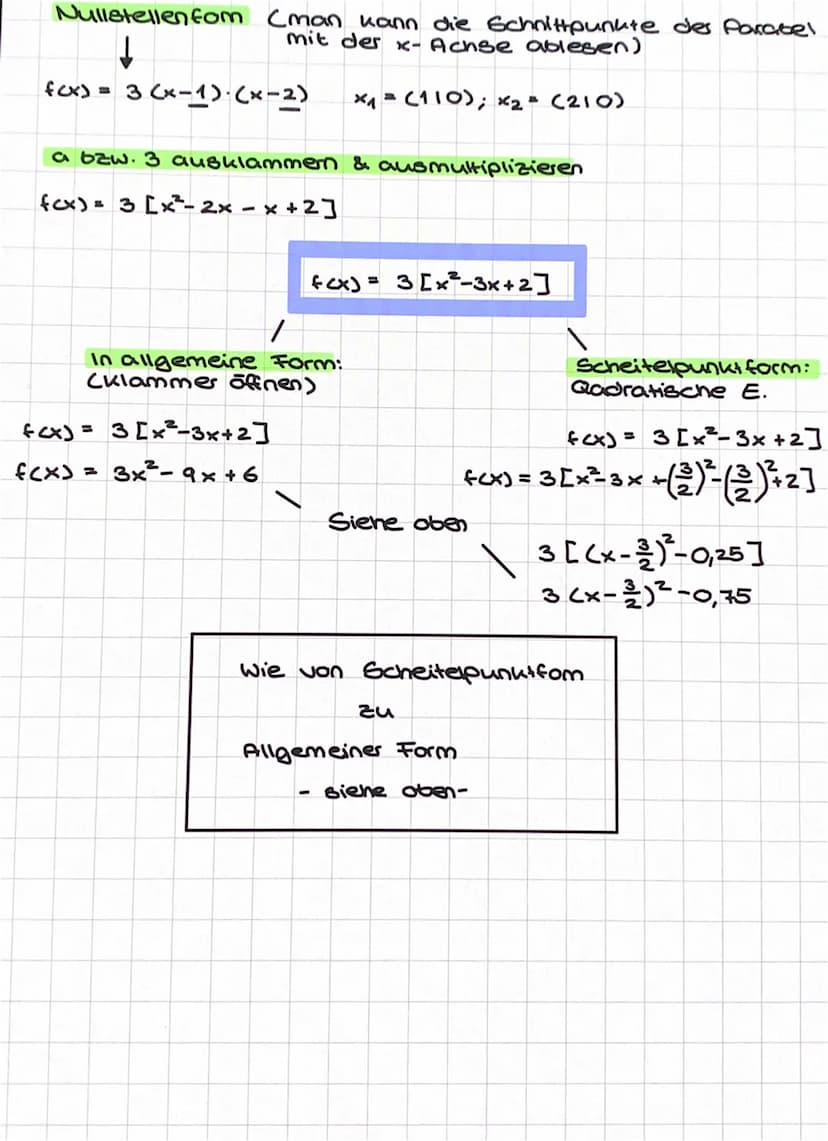 Nullstellenfom (man kann die Schnittpunkte des Parabel
mit der x-Achse ablesen)
↓
f(x) = 3 (x-1)·(x-2) x₁ = (1|0); x₂ = (2|0)
a bzw. 3 ausklammern & ausmultiplizieren
f(x) = 3 [x²- 2x - x +2]
f(x) = 3 [x²-3x+2]
In allgemeine Form:
(Klammer öffnen)
f(x) = 3 [x²-3x+2]
f(x) = 3x²- 9x + 6
Scheitelpunktform:
Qadratische E.
f(x) = 3 [x²- 3x +2]
f(x) = 3[x²-3x +(3/2)²-(3/2)²+2]
3 [(x-3/2)²-0,25]
3 (x-3/2)² -0,75
Siehe oben
Wie von Scheitelpunktfom
zu
Allgemeiner Form
- siehe oben-